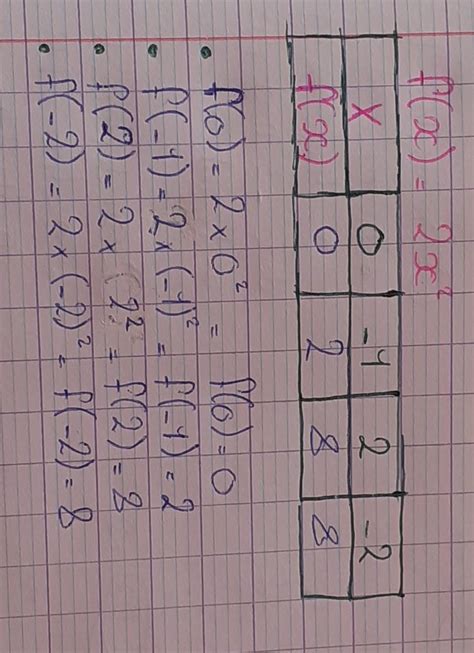 f(x) = 2x²
x 0 -1 2 -2
f(x) 0 2 8 8
• f(0) = 2 × 0² = f(0) = 0
• f(-1) = 2 × (-1)² = f(-1) = 2
• f(2) = 2 × 2² = f(2) = 8
• f(-2) = 2 × (-2)² = f(-2) = 8